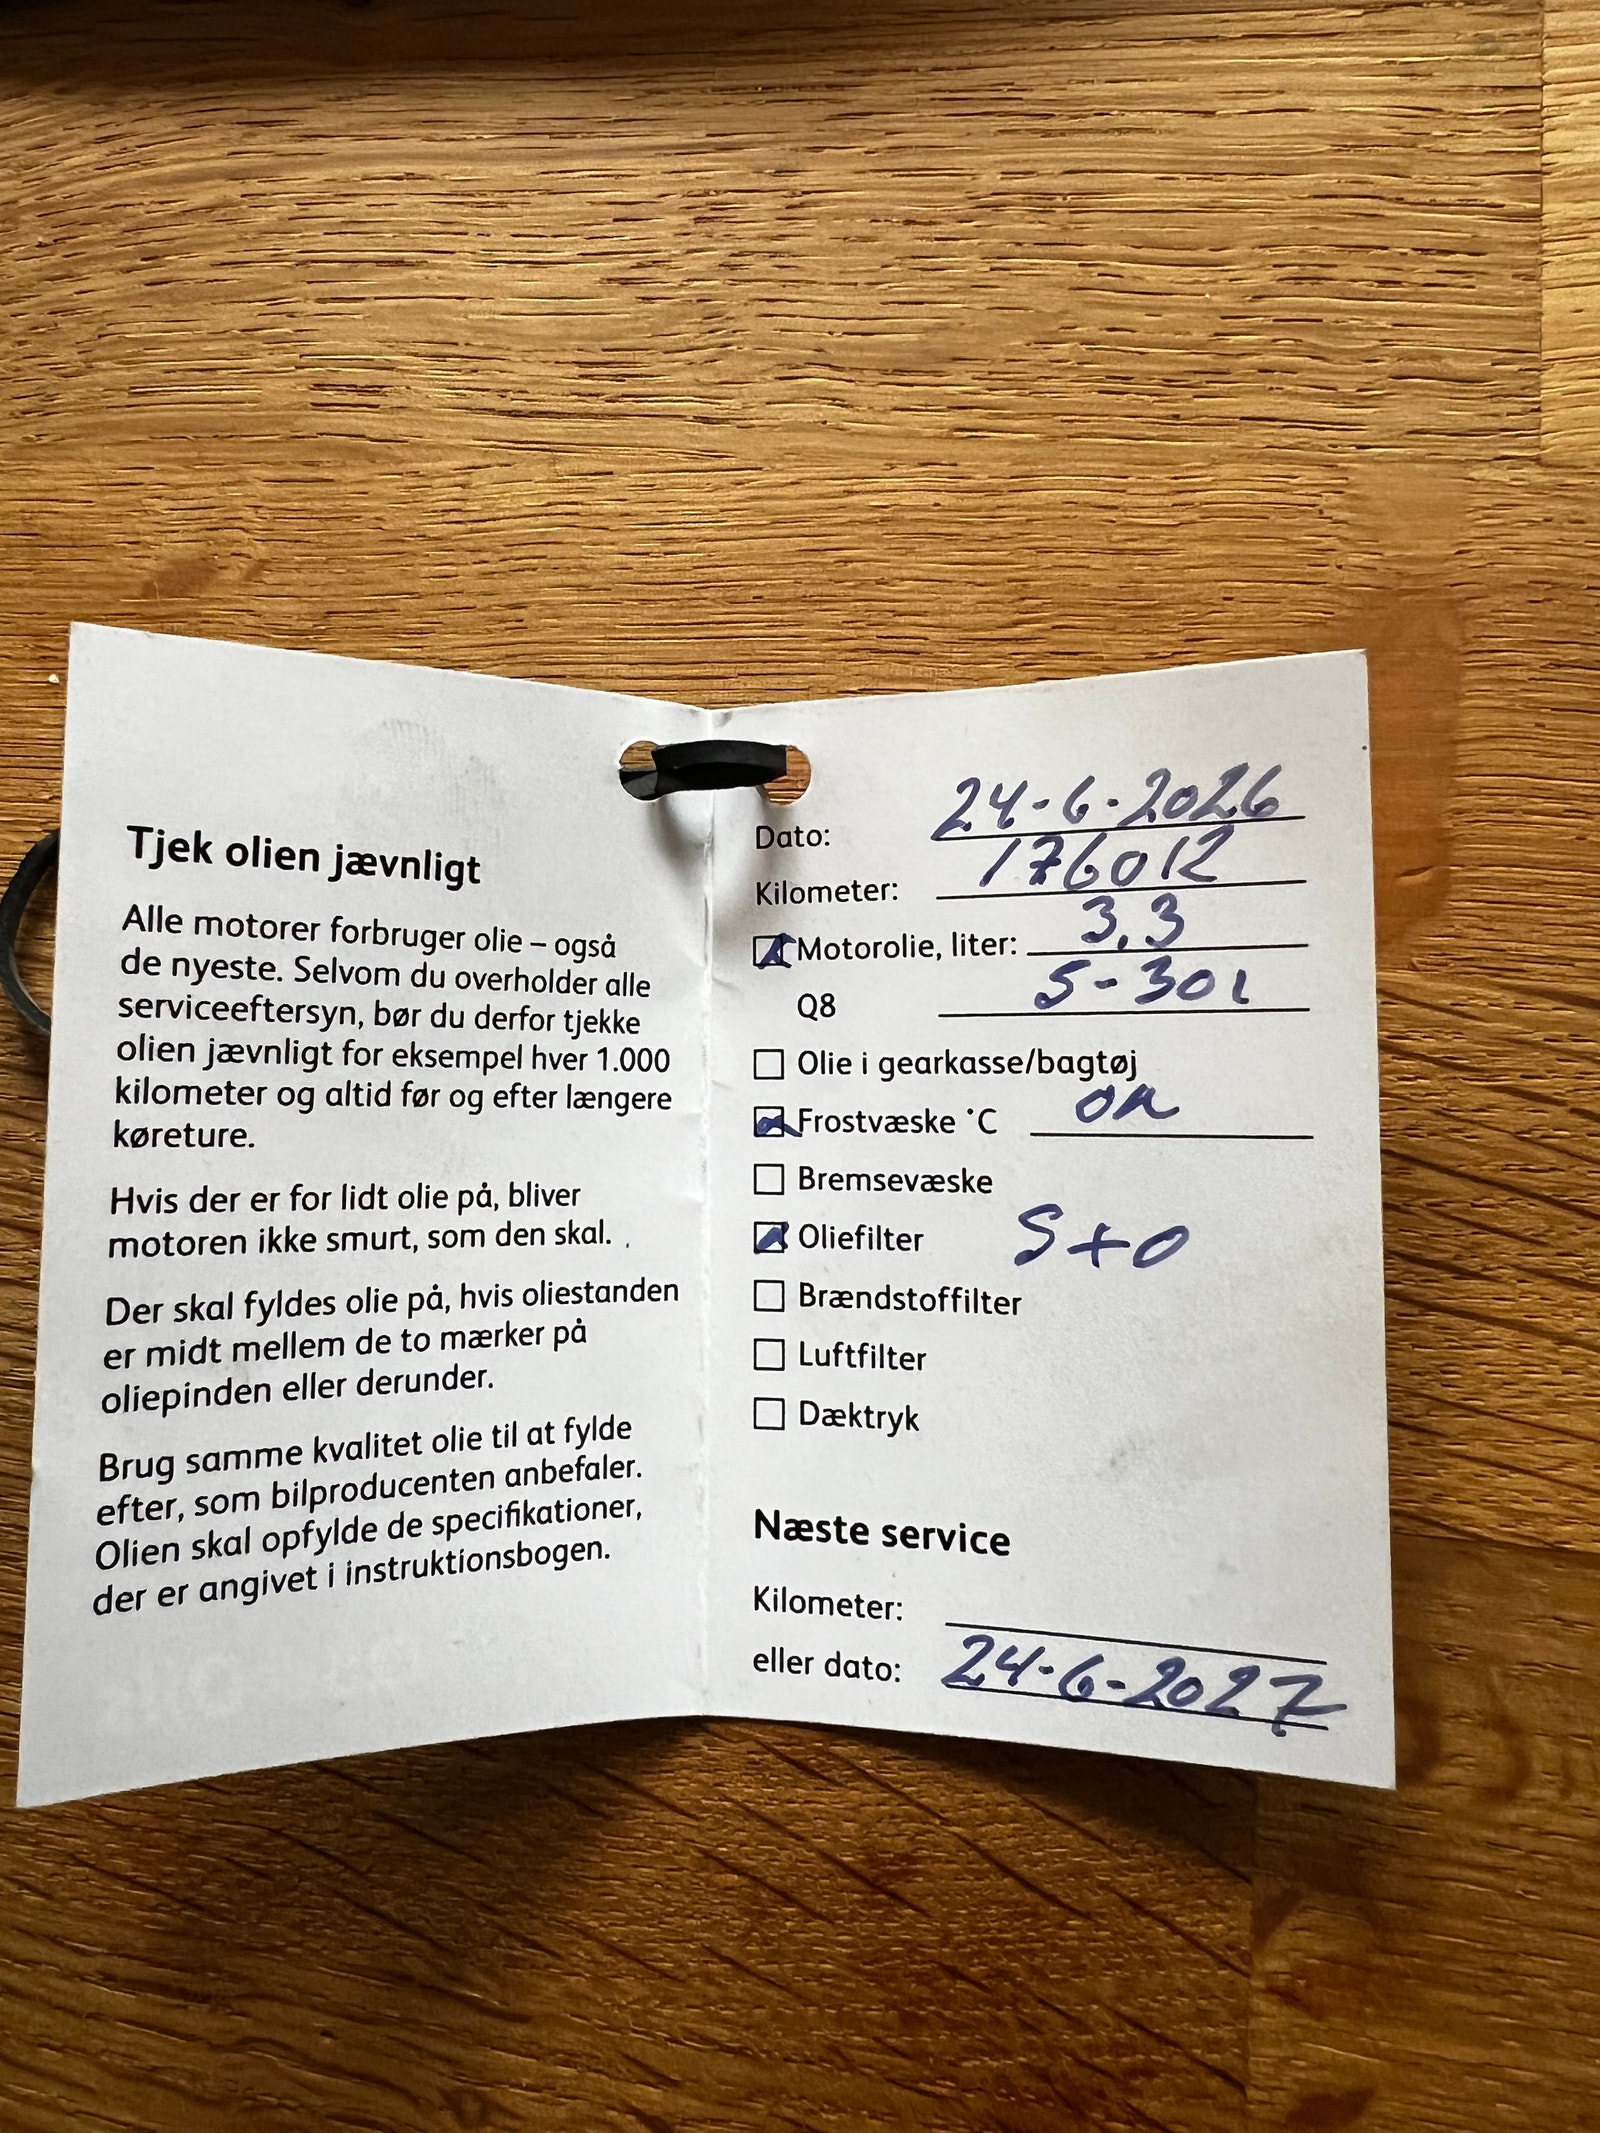 Tjek olien jævnligt
Alle motorer forbruger olie – også
de nyeste. Selvom du overholder alle
serviceeftersyn, bør du derfor tjekke
olien jævnligt for eksempel hver 1.000
kilometer og altid før og efter længere
køreture.
Hvis der er for lidt olie på, bliver
motoren ikke smurt, som den skal.
Der skal fyldes olie på, hvis oliestanden
er midt mellem de to mærker på
oliepinden eller derunder.
Brug samme kvalitet olie til at fylde
efter, som bilproducenten anbefaler.
Olien skal opfylde de specifikationer,
der er angivet i instruktionsbogen.
Dato: 24-6-2026
Kilometer: 176012
Motorolie, liter: 3,3
Q8 5-30
Olie i gearkasse/bagtøj
Frostvæske °C OK
Bremsevæske
Oliefilter S+O
Brændstoffilter
Luftfilter
Dæktryk
Næste service
Kilometer:
eller dato: 24-6-2027